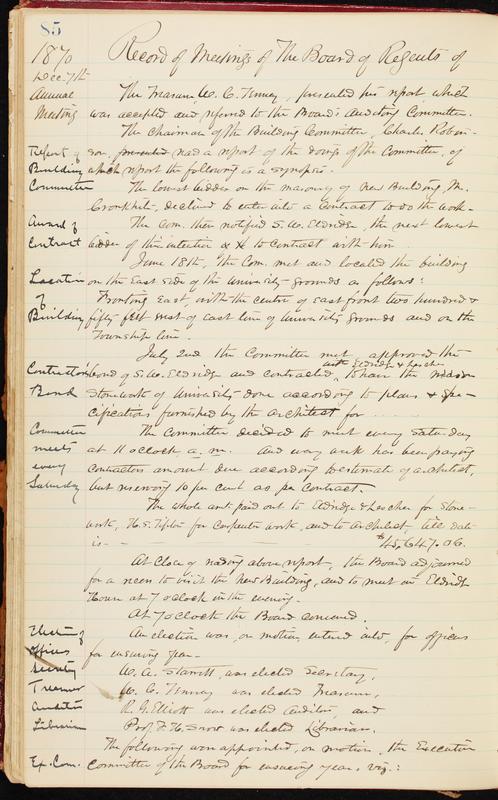 85
1870
Record of Meetings of The Board of Regents of
Dec. 7th
Annual
Meeting
The Treasurer W. C. Tenney, presented his report which
was accepted and referred to the Board's Auditing Committee.
The chairman of the Building Committee, Charles Robin-
Report of
Building
Committee
son, presented read a report of the doings of the Committee, of
which report the following is a synopsis.
The lowest bidder on the masonry of new Building, Mr.
Cronkhite, declined to enter into a contract to do the work.
Award of
Contract
The Com. then notified S. W. Eldridge, the next lowest
bidder of the intention to contract with him.
June 18th, the Com. met and located the building
Location
of
Building
on the East side of the University grounds as follows:
Fronting East, with the centre of east front two hundred &
fifty feet west of east line of University grounds and on the
Township line.
July 2nd the Committee met, approved the
Contractor's
Bond
bond of S. W. Eldridge and contracted, with Eldridge & Lescher to have the
stonework of University done according to plans & spe-
cifications furnished by the architect for
Committee
meets
every
Saturday
The Committee decided to meet every Saturday
at 11 o'clock a. m. And every week has been paying
contractors amount due according to estimate of architect,
but reserving 10 per cent as per contract.
The whole amt. paid out to Eldridge & Lescher for stone-
work, H. S. for carpenter work, and to architect till date
is - $45,647.06.
At close of reading above report, the Board adjourned
for a recess to visit the new Building, and to meet in Eldridge
House at 7 o'clock in the evening.
At 7 o'clock the Board convened.
Election of
officers
An election was, on motion, entered into, for officers
for ensuing year -
Secretary
W. A. Starrett, was elected Secretary,
Treasurer
W. C. Tenney was elected Treasurer,
Auditor
R. G. Elliott was elected Auditor, and
Librarian
Prof. F. H. Snow was elected Librarian.
The following were appointed, on motion, the Executive
Ex. Com.
Committee of the Board for ensuing year, viz.: